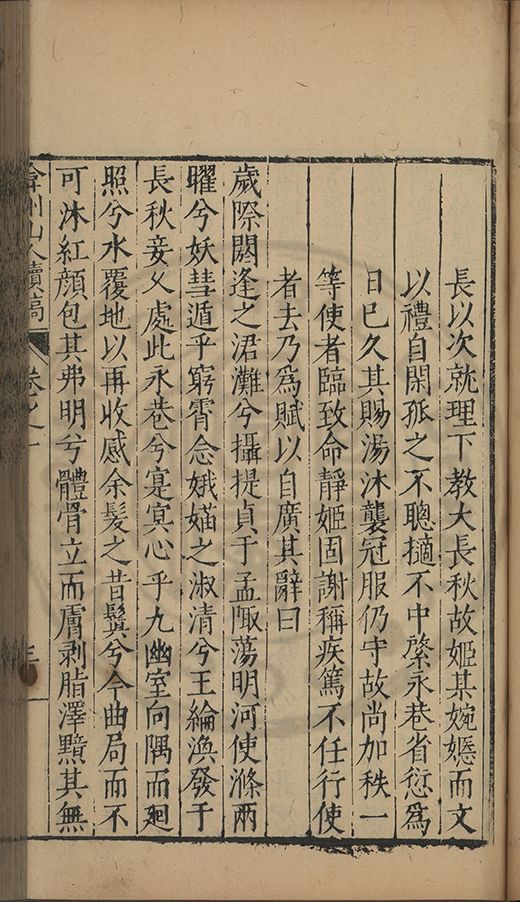 長以次就理下教大長秋故姬某婉嫕而文
以禮自閑孤之不聰擿不中棨永巷省愆爲
日已久其賜湯沐襲冠服仍守故尚加秩一
等使者臨致命靜姬固謝稱疾篤不任行使
者去乃爲賦以自廣其辭曰
歲際閼逢之涒灘兮攝提貞于孟陬蕩明河使滌兩
曜兮妖彗遁乎窮霄念娥媌之淑清兮王綸渙發于
長秋妾乂處此永巷兮寔冥心乎九幽室向隅而廻
照兮水覆地以再收感余髮之昔鬒兮今曲局而不
可沐紅顔包其弗明兮體骨立而膚剥脂澤黯其無
弇州山人續稿 卷之一